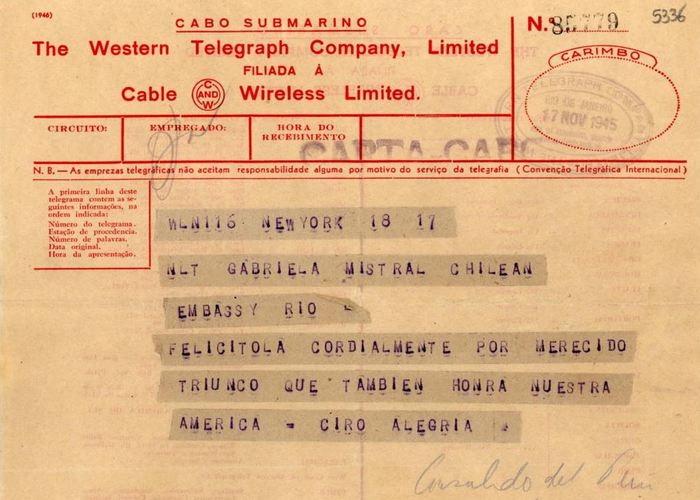 (1946)
CABO SUBMARINO
The Western Telegraph Company, Limited
FILIADA À
Cable C AND W Wireless Limited.
N.º 85779
5336
CARIMBO
RIO DE JANEIRO
17 NOV 1945
CIRCUITO:
EMPREGADO:
HORA DO
RECEBIMENTO
CARTA-CABO
N. B. — As emprezas telegráficas não aceitam responsabilidade alguma por motivo do serviço da telegrafia (Convenção Telegráfica Internacional)
A primeira linha deste
telegrama contem as se-
guintes informações, na
ordem indicada:
Número do telegrama.
Estação de procedencia.
Número de palavras.
Data original.
Hora da apresentação.
WLN116 NEWYORK 18 17
NLT GABRIELA MISTRAL CHILEAN
EMBASSY RIO -
FELICITOLA CORDIALMENTE POR MERECIDO
TRIUNCO QUE TAMBIEN HONRA NUESTRA
AMERICA = CIRO ALEGRIA
Consulado del